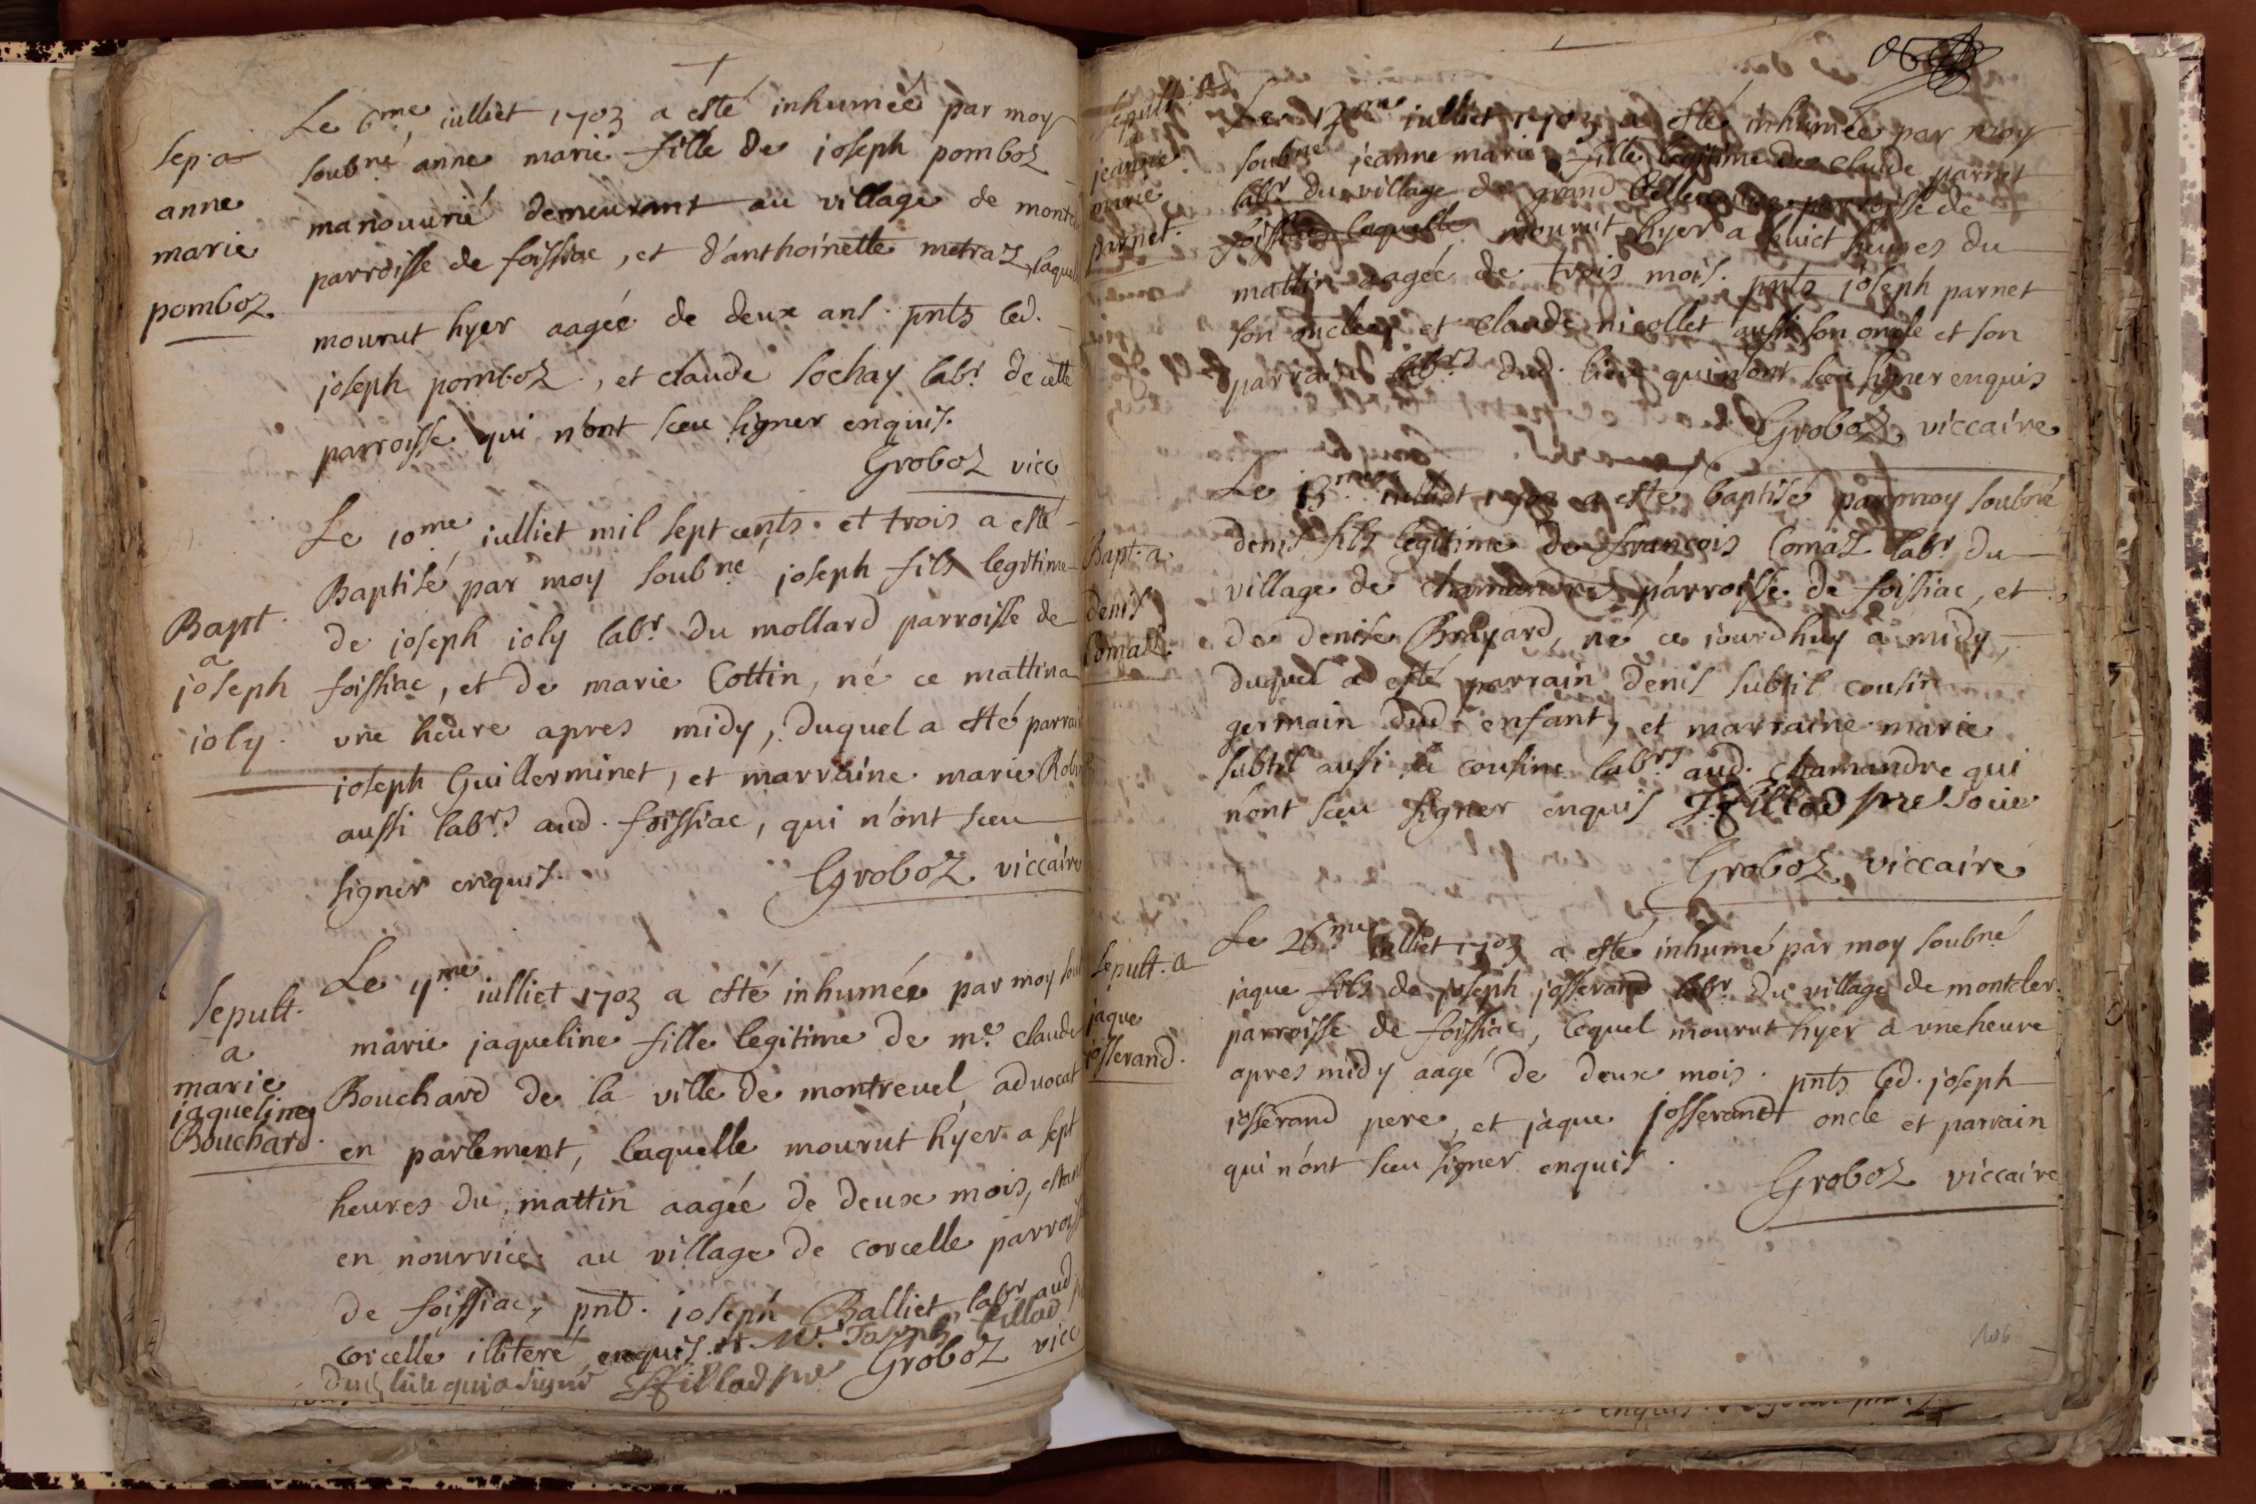 sep. a
anne
marie
pomboz
Le 6me iulliet 1703 a esté inhumée par moy
soubné anne marie fille de joseph pomboz
manouurié demeurant au village de
parroisse de foissiac, et d'anthoinette metraz, laquelle
mourut hyer aagée de deux ans. pnts led.
joseph pomboz, et claude sochay labr. de cette
parroisse qui n'ont sceu signer enquis.
Groboz vicc
Bapt.
a
joseph
ioly.
Le 10me iulliet mil sept cents. et trois a esté
Baptisé par moy soubné joseph fils legitime
de joseph ioly labr. du mollard parroisse de
foissiac, et de marie Cottin, né ce mattin a
vne heure apres midy, duquel a esté parrain
joseph Guillerminet, et marraine marie
aussi labrs aud. foissiac, qui n'ont sceu
signer enquis.
Groboz viccaire
sepult.
a
marie
jaqueline
Bouchard.
Le me iulliet 1703 a esté inhumée par moy
marie jaqueline fille legitime de me. claude
Bouchard de la ville de montreuel, aduocat
en parlement, laquelle mourut hyer a sept
heures du mattin aagée de deux mois, estant
en nourrice au village de corcelle parroisse
de foissiac, pnt. joseph Balliet labr aud
corcelle illiteré enquis. et Mr. Joseph fillod
dud lieu qui a signé Jfillod pre Groboz vicc
sepult. a
jeanne
marie
parnet.
Le 12me iulliet 1703 a esté inhumée par moy
soubné jeanne marie fille legitime de claude parnet
labr du village de grand parroisse de
foissiac laquelle mourut hyer a huict heures du
mattin aagée de trois mois. pnts joseph parnet
son oncle et claude nicollet aussi son oncle et son
parrain labrs dud. lieu qui n'ont sceu signer enquis
Groboz viccaire
Bapt. a
denis
Comaz.
Le 13me iulliet 1703 a esté baptisé par moy soubné
denis fils legitime de francois Comaz labr du
village de chamandre parroisse de foissiac, et
de denise Brayard, né ce iourdhuy a midy,
duquel a esté parrain denis subtil cousin
germain dud. enfant, et marraine marie
subtil aussi sa cousine labrs aud. chamandre qui
n'ont sceu signer enquis Jfillod pre
Groboz viccaire
sepult. a
jaque
josserand.
Le 26me iulliet 1703 a esté inhumé par moy soubné
jaque fils de joseph josserand labr. du village de
parroisse de foissiac, lequel mourut hyer a vne heure
apres midy aagé de deux mois. pnts led. joseph
josserand pere, et jaque josserand oncle et parrain
qui n'ont sceu signer enquis.
Groboz viccaire
106